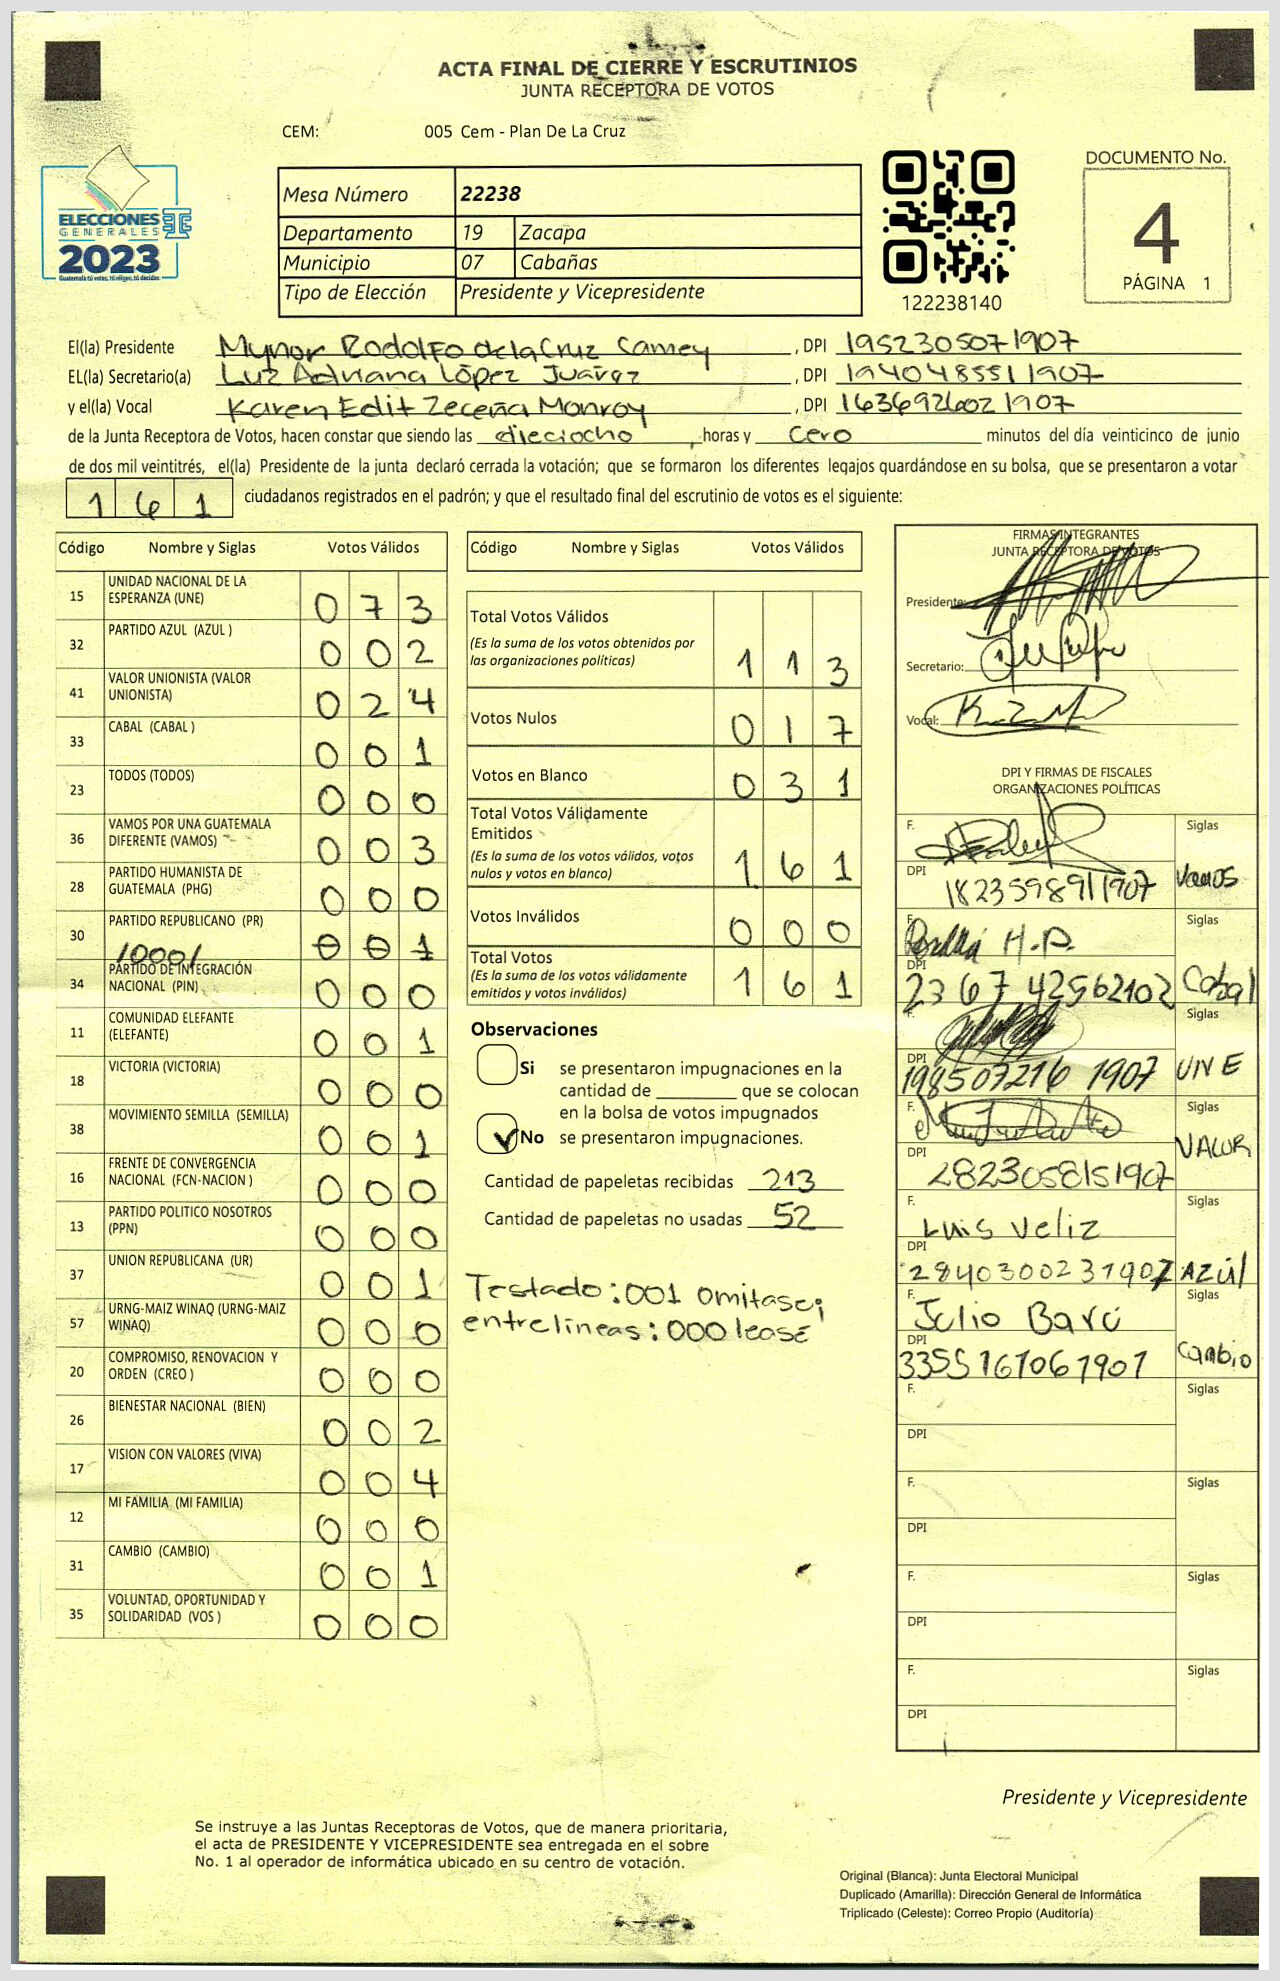 ACTA FINAL DE CIERRE Y ESCRUTINIOS
JUNTA RECEPTORA DE VOTOS
CEM: 005 Cem - Plan De La Cruz
ELECCIONES
GENERALES
2023
Guatemala tú votas, tú eliges, tú decides
Mesa Número 22238
Departamento 19 Zacapa
Municipio 07 Cabañas
Tipo de Elección Presidente y Vicepresidente
122238140
DOCUMENTO No.
4
PÁGINA 1
El(la) Presidente Mynor Rodolfo de la Cruz Camey, DPI 1952305071907
EL(la) Secretario(a) Luz Adriana López Juárez, DPI 1940485511907
y el(la) Vocal Karen Edit Zeceña Monroy, DPI 1636926021907
de la Junta Receptora de Votos, hacen constar que siendo las dieciocho, horas y Cero minutos del día veinticinco de junio
de dos mil veintitrés, el(la) Presidente de la junta declaró cerrada la votación; que se formaron los diferentes legajos guardándose en su bolsa, que se presentaron a votar
161 ciudadanos registrados en el padrón; y que el resultado final del escrutinio de votos es el siguiente:
Código Nombre y Siglas Votos Válidos
15 UNIDAD NACIONAL DE LA ESPERANZA (UNE) 0 7 3
32 PARTIDO AZUL (AZUL ) 0 0 2
41 VALOR UNIONISTA (VALOR UNIONISTA) 0 2 4
33 CABAL (CABAL ) 0 0 1
23 TODOS (TODOS) 0 0 0
36 VAMOS POR UNA GUATEMALA DIFERENTE (VAMOS) 0 0 3
28 PARTIDO HUMANISTA DE GUATEMALA (PHG) 0 0 0
30 PARTIDO REPUBLICANO (PR) /000/ 0 0 1
34 PARTIDO DE INTEGRACIÓN NACIONAL (PIN) 0 0 0
11 COMUNIDAD ELEFANTE (ELEFANTE) 0 0 1
18 VICTORIA (VICTORIA) 0 0 0
38 MOVIMIENTO SEMILLA (SEMILLA) 0 0 1
16 FRENTE DE CONVERGENCIA NACIONAL (FCN-NACION ) 0 0 0
13 PARTIDO POLITICO NOSOTROS (PPN) 0 0 0
37 UNION REPUBLICANA (UR) 0 0 1
57 URNG-MAIZ WINAQ (URNG-MAIZ WINAQ) 0 0 0
20 COMPROMISO, RENOVACION Y ORDEN (CREO ) 0 0 0
26 BIENESTAR NACIONAL (BIEN) 0 0 2
17 VISION CON VALORES (VIVA) 0 0 4
12 MI FAMILIA (MI FAMILIA) 0 0 0
31 CAMBIO (CAMBIO) 0 0 1
35 VOLUNTAD, OPORTUNIDAD Y SOLIDARIDAD (VOS ) 0 0 0
Código Nombre y Siglas Votos Válidos
Total Votos Válidos
(Es la suma de los votos obtenidos por
las organizaciones políticas) 1 1 3
Votos Nulos 0 1 7
Votos en Blanco 0 3 1
Total Votos Válidamente
Emitidos
(Es la suma de los votos válidos, votos
nulos y votos en blanco) 1 6 1
Votos Inválidos 0 0 0
Total Votos
(Es la suma de los votos válidamente
emitidos y votos inválidos) 1 6 1
Observaciones
Si se presentaron impugnaciones en la
cantidad de ________ que se colocan
en la bolsa de votos impugnados
No se presentaron impugnaciones.
Cantidad de papeletas recibidas 213
Cantidad de papeletas no usadas 52
Testado: 001 omitase;
entrelineas: 000 lease
FIRMAS INTEGRANTES
JUNTA RECEPTORA DE VOTOS
Presidente:
Secretario:
Vocal:
DPI Y FIRMAS DE FISCALES
ORGANIZACIONES POLÍTICAS
F. Siglas
DPI 1823598911907 Vamos
F. H.P. Siglas
DPI 2367 42562102 Cabal
F. Siglas
DPI 198507216 1907 UNE
F. Siglas
DPI 2823058151907 VALOR
F. Luis Veliz Siglas
DPI 2840300231907 AZÚl
F. Julio Barú Siglas
DPI 3355161061901 Cambio
F. Siglas
DPI
F. Siglas
DPI
F. Siglas
DPI
F. Siglas
DPI
Presidente y Vicepresidente
Se instruye a las Juntas Receptoras de Votos, que de manera prioritaria,
el acta de PRESIDENTE Y VICEPRESIDENTE sea entregada en el sobre
No. 1 al operador de informática ubicado en su centro de votación.
Original (Blanca): Junta Electoral Municipal
Duplicado (Amarilla): Dirección General de Informática
Triplicado (Celeste): Correo Propio (Auditoría)